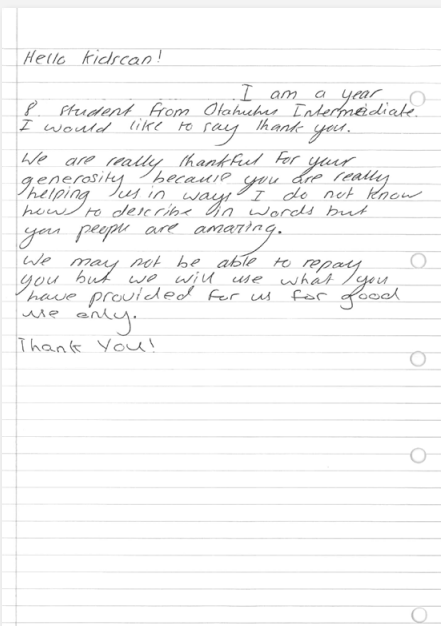 Hello Kidscan!
I am a year
8 student from Otahuhu Intermediate.
I would like to say thank you.
We are really thankful for your
generosity because you are really
helping us in ways I do not know
how to describe in words but
you people are amazing.
We may not be able to repay
you but we will use what you
have provided for us for good
use only.
Thank You!